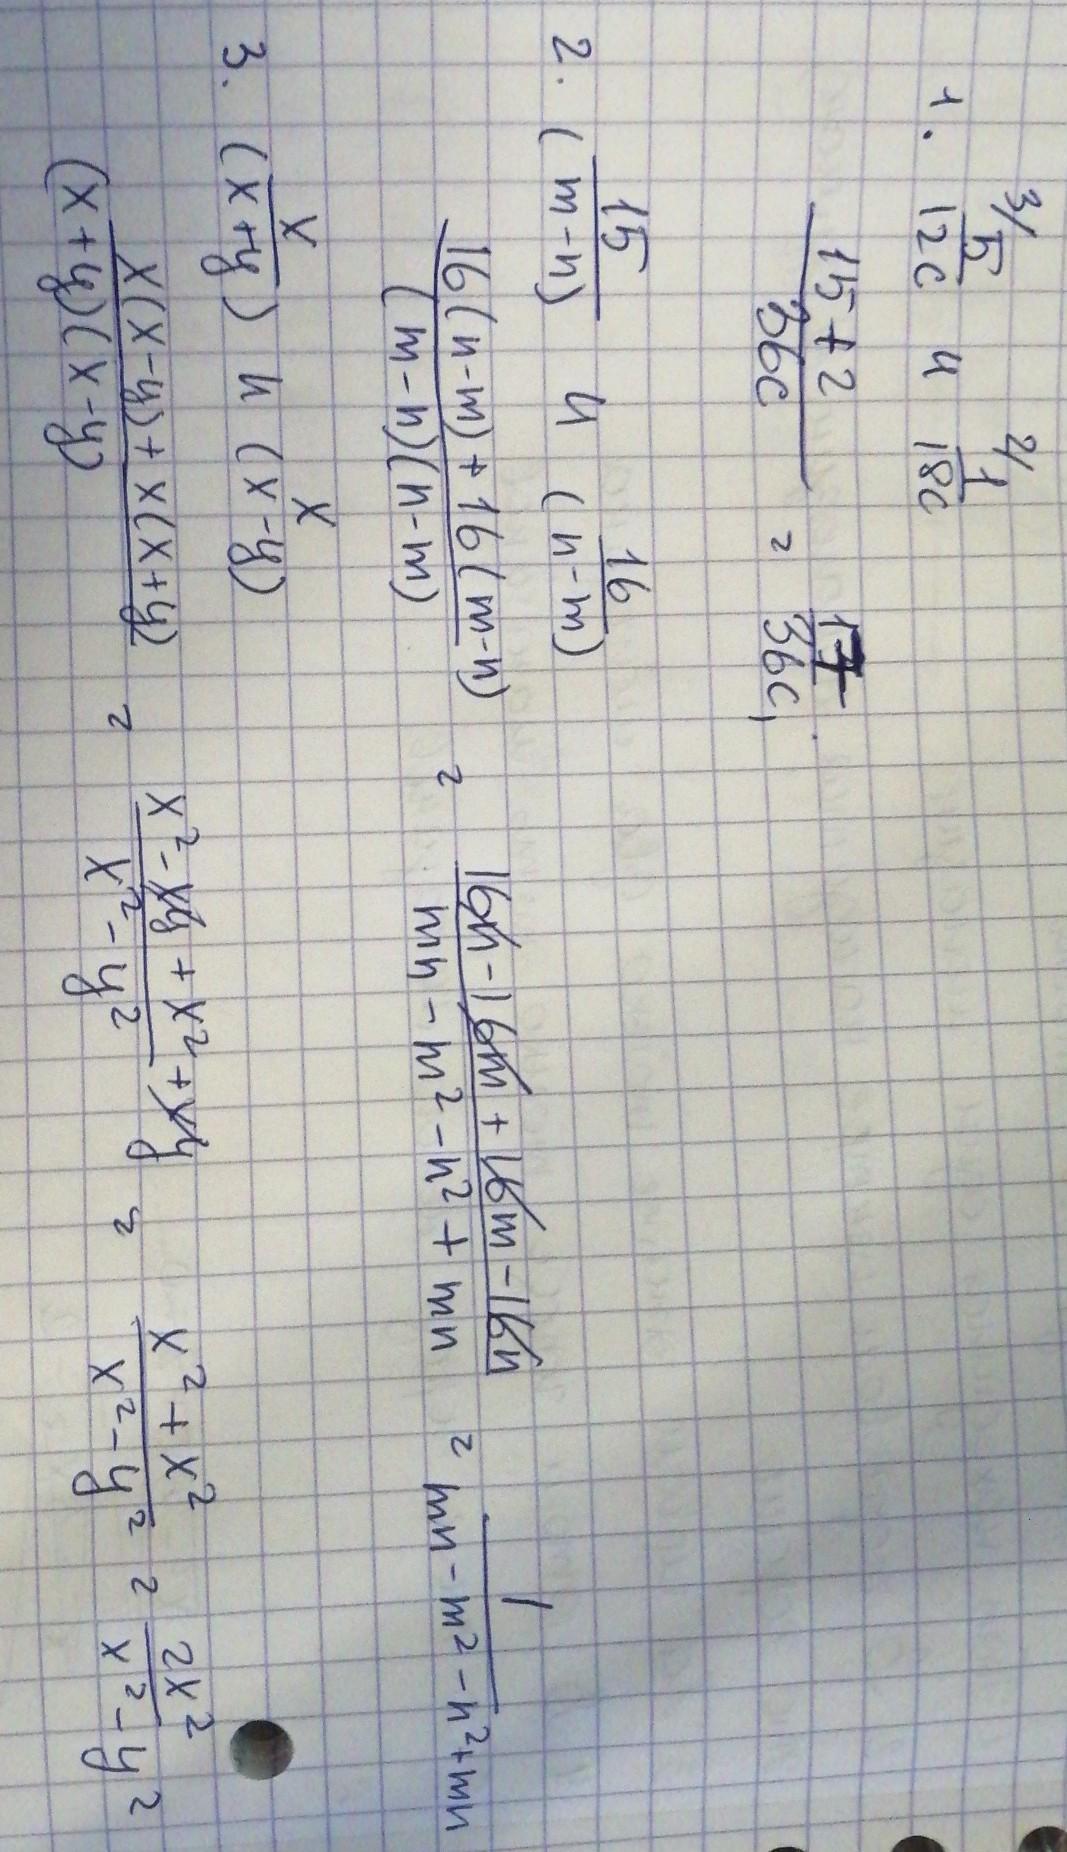 1. 3/ 5/12c и 2/ 1/18c
(15+2)/36c = 17/36c,
2. 15/(m-n) и 16/(n-m)
(16(n-m)+16(m-n))/((m-n)(n-m)) = (16n-16m+16m-16n)/(mn-m²-n²+mn) = 1/(mn-m²-n²+mn)
3. x/(x+y) и x/(x-y)
(x(x-y)+x(x+y))/((x+y)(x-y)) = (x²-xy+x²+xy)/(x²-y²) = (x²+x²)/(x²-y²) = 2x²/(x²-y²)